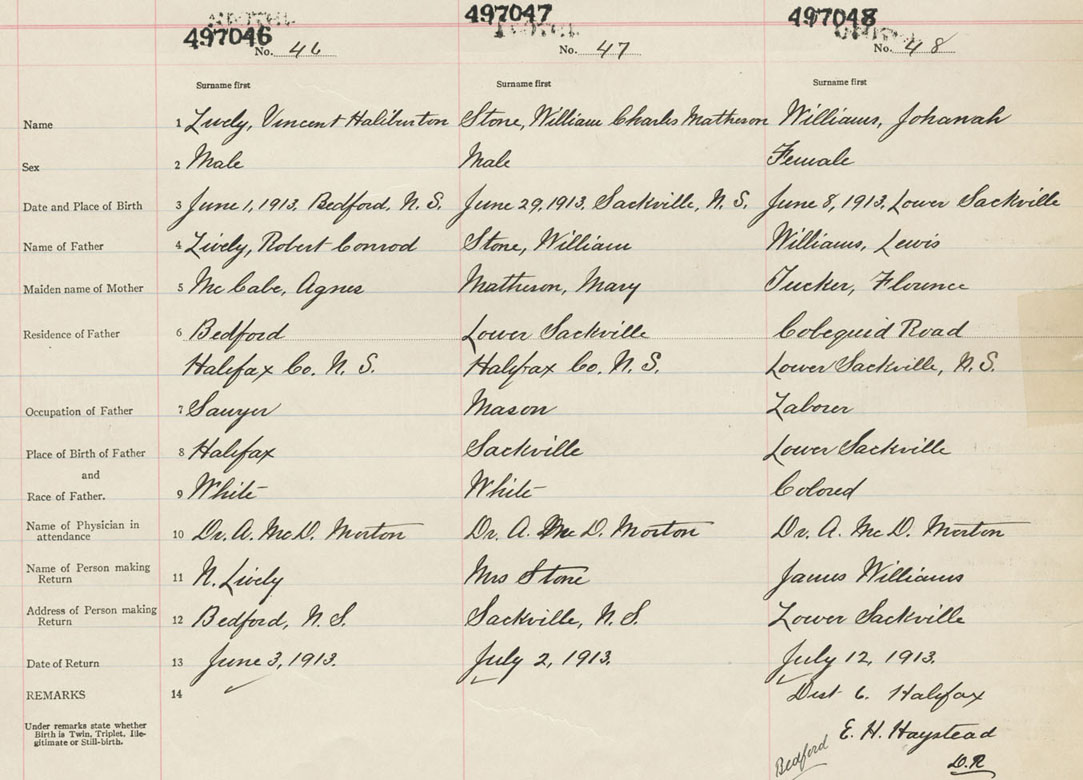 497046 497047 497048
No. 46 No. 47 No. 48
Surname first Surname first Surname first
Name 1 Lively, Vincent Haliburton Stone, William Charles Matheson Williams, Johanah
Sex 2 Male Male Female
Date and Place of Birth 3 June 1, 1913, Bedford, N. S. June 29, 1913, Sackville, N. S. June 8, 1913, Lower Sackville
Name of Father 4 Lively, Robert Conrod Stone, William Williams, Lewis
Maiden name of Mother 5 Mc Cabe, Agnes Matheson, Mary Tucker, Florence
Residence of Father 6 Bedford Lower Sackville Cobequid Road
Halifax Co. N. S. Halifax Co. N. S. Lower Sackville, N. S.
Occupation of Father 7 Sawyer Mason Laborer
Place of Birth of Father 8 Halifax Sackville Lower Sackville
and
Race of Father. 9 White White Colored
Name of Physician in
attendance 10 Dr. A. Mc D. Morton Dr. A. Mc D. Morton Dr. A. Mc D. Morton
Name of Person making
Return 11 N. Lively Mrs Stone James Williams
Address of Person making
Return 12 Bedford, N. S. Sackville, N. S. Lower Sackville
Date of Return 13 June 3, 1913. July 2, 1913. July 12, 1913.
REMARKS 14 Dist 6. Halifax
Under remarks state whether
Birth is Twin, Triplet, Ille-
gitimate or Still-birth.
E. H. Haystead
Bedford D.R